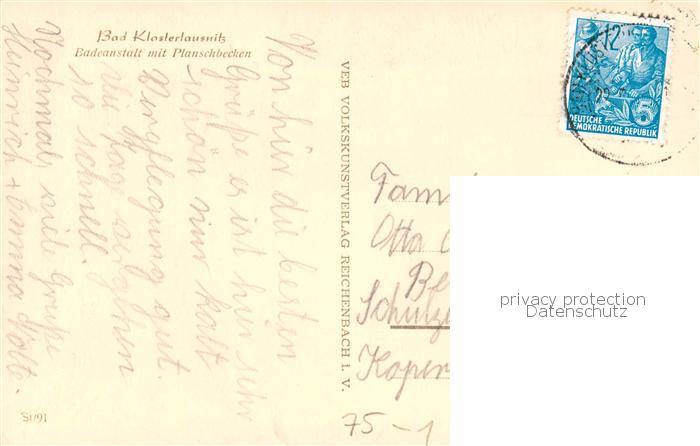 Bad Klosterlausnitz
Badeanstalt mit Planschbecken
Von hier die besten
Grüße es ist hier sehr
schön nur kalt
Verpflegung gut.
die Tage
so schnell.
Nochmals viele Grüße
Heinrich + Emma
VEB VOLKSKUNSTVERLAG REICHENBACH i. V.
St/91
5
DEUTSCHE
DEMOKRATISCHE REPUBLIK
Fami
Otto
Be
Schulze
Koper
privacy protection
Datenschutz
75-1